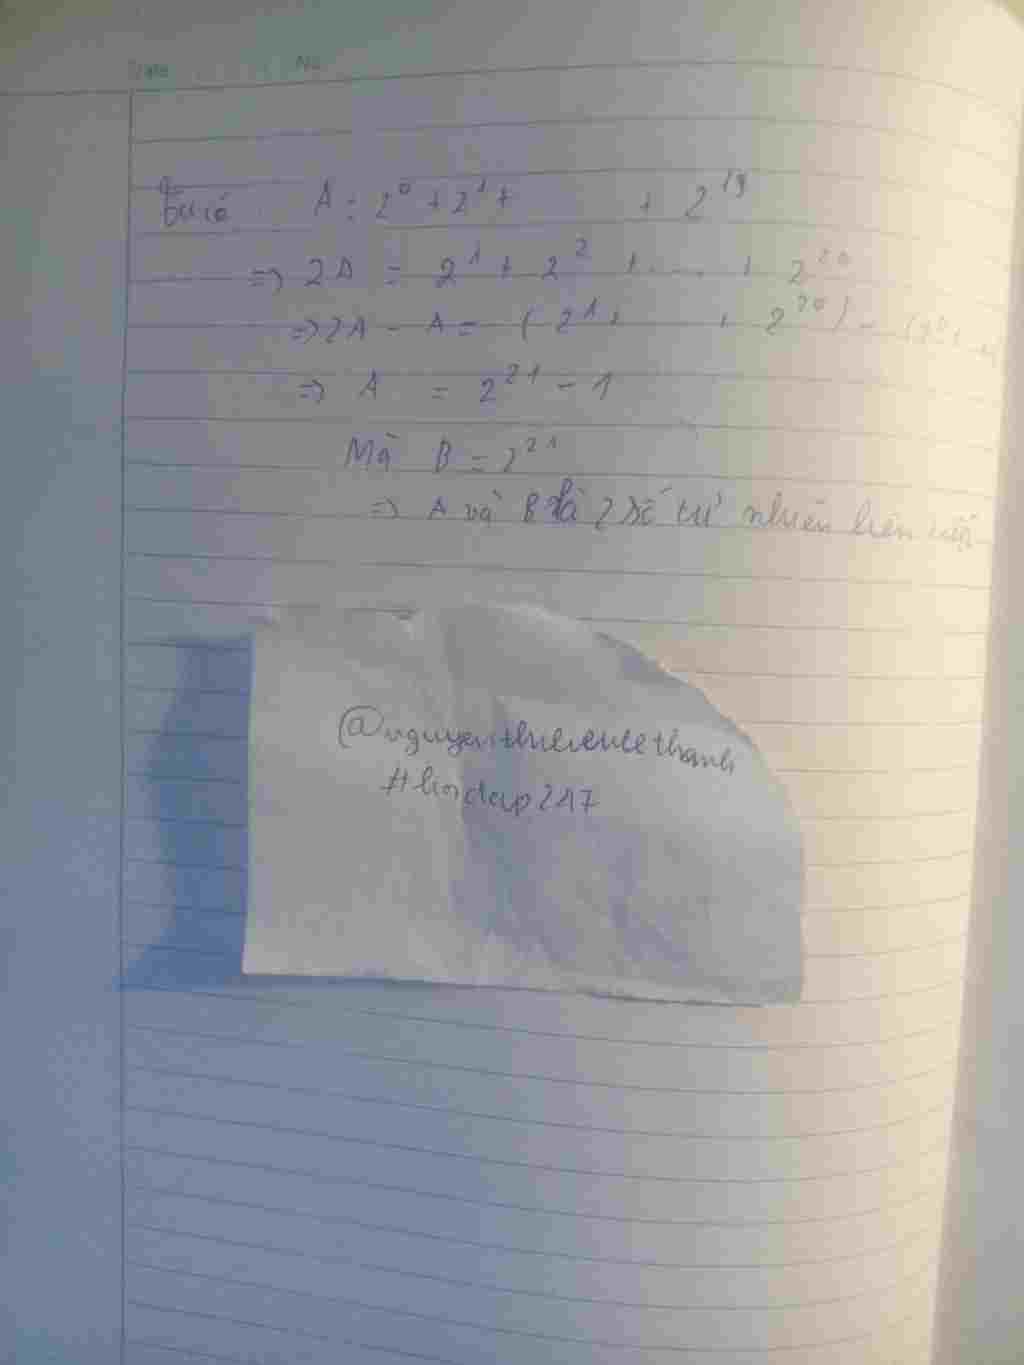 Date No
Ta có A = 2⁰ + 2¹ + + 2¹⁹
=> 2A = 2¹ + 2² + .... + 2²⁰
=> 2A - A = (2¹ + + 2²⁰) - (2⁰ +
=> A = 2²¹ - 1
Mà B = 2²¹
=> A và B là 2 số tự nhiên liên tiếp
#hoidap247